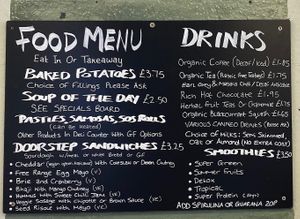 FOOD MENU
Eat In Or Takeaway
BAKED POTATOES £3.75
Choice Of Fillings Please Ask
SOUP OF THE DAY £2.50
SEE SPECIALS BOARD
PASTIES, SAMOSAS, SOS ROLLS
(Can Be Heated)
Other Products In Deli Counter With GF Options
DOORSTEP SANDWICHES £3.25
Sourdough w/meal or White Bread or GF
Cheddar (Vegan available) with Coleslaw or Onion Chutney
Free Range Egg Mayo (V)
Brie and Cranberry (V)
Bhaji With Mango Chutney (VE)
Hummus With Sweet Chilli Jam (VE)
Veggie Sausage With Chipotle or Brown Sauce (VE)
Seed Risotto with Mayo (VE)
DRINKS
Organic Coffee (Decaf/Iced) £1.95
Organic Tea
Rich Hot Chocolate £1.95
Herbal, Fruit Teas Or £1.75
Organic Barleycup £1.45
VARIOUS CANNED DRINKS
CHOICE OF MILKS: SEMI SKIMMED
OAT OR ALMOND (NO EXTRA COST)
SMOOTHIES £3.50
Super Greens
Summer Fruits
Detox
Tropical
Super Protein
ADD SPIRULINA OR GUARANA 20P